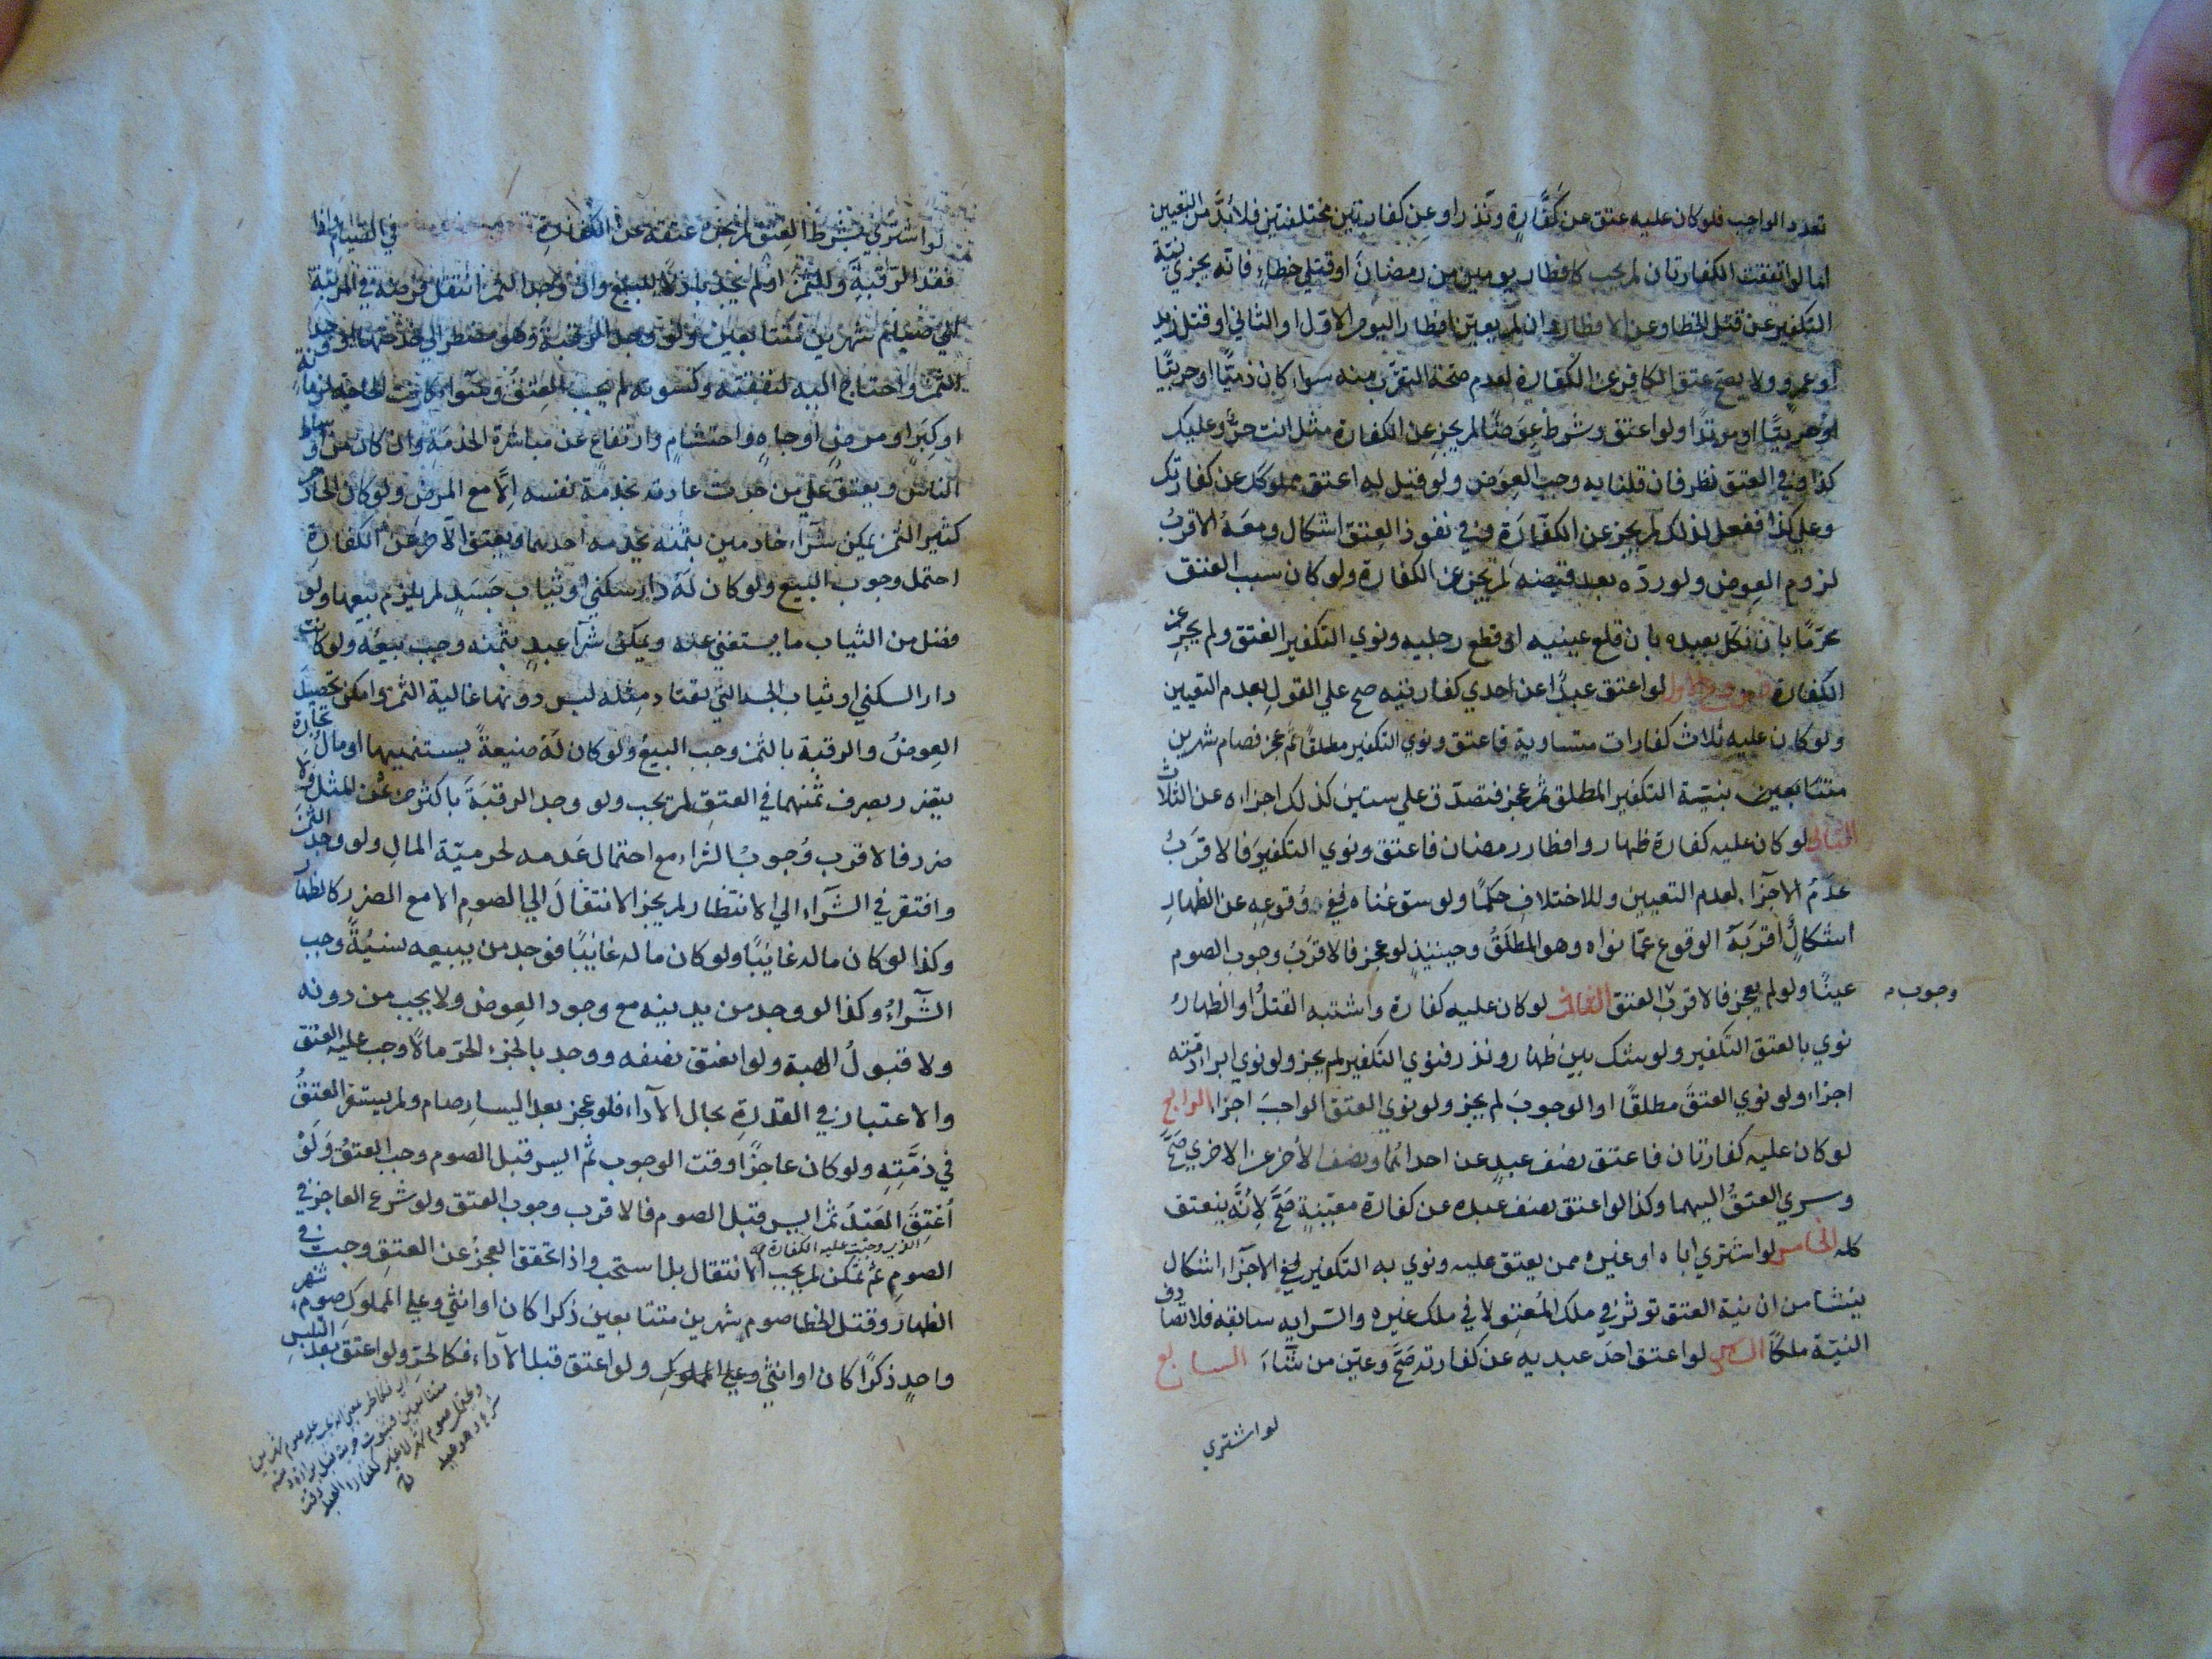 تعدد الواجب فلو كان عليه عتق عن كفارة ونذر او عن كفارتين مختلفتين فلا بد من التعيين
اما لو اتفقت الكفارتان لم يجب كافطار يومين من رمضان او قتلي خطاء فانه يجزي نية
التكفير عن قتل الخطا وعن الافطار وان لم يعين افطار اليوم الاول او الثاني او قتل زيد
او عمرو ولا يصح عتق الكافر عن الكفارة لعدم صحة التقرب منه سواء كان ذميا او حربيا
او مرتدا ولو اعتق وشرط عوضا لم يجز عن الكفارة مثل انت حر وعليك
كذا وفي العتق نظر فان قلنا به وجب العوض ولو قيل له اعتق مملوكك عن كفارتك
وعلي كذا ففعل لذلك لم يجز عن الكفارة وفي نفوذ العتق اشكال ومعه الاقرب
لزوم العوض ولو رده بعد قبضه لم يجز عن الكفارة ولو كان سبب العتق
محرما بان نكل بعبده بان قلع عينيه او قطع رجليه ونوي التكفير انعتق ولم يجز عن
الكفارة فروع الاول لو اعتق عبدا عن احدي كفارتيه صح علي القول بعدم التعيين
ولو كان عليه ثلاث كفارات متساوية فاعتق ونوي التكفير مطلقا ثم عجز فصام شهرين
متتابعين بنية التكفير المطلق ثم عجز فتصدق علي ستين كذلك اجزاه عن الثلاث
الثاني لو كان عليه كفارة ظهار وافطار رمضان فاعتق ونوي التكفير فالاقرب
عدم الاجزاء لعدم التعيين وللاختلاف حكما ولو سوغناه ففي وقوعه عن الظهار
اشكال اقربه الوقوع عما نواه وهو المطلق وحينئذ لو عجز فالاقرب وجوب الصوم
عينا ولو لم يعجز فالاقرب العتق الثالث لو كان عليه كفارة واشتبه القتل او الظهار
وجوب
نوي بالعتق التكفير ولو شك بين ظهار ونذر فنوي التكفير لم يجز ولو نوي ابراء ذمته
اجزاء ولو نوي العتق مطلقا او الوجوب لم يجز ولو نوي العتق الواجب اجزاء الرابع
لو كان عليه كفارتان فاعتق نصف عبد عن احداهما ونصف الأخر عن الاخري صح
وسري العتق اليهما وكذا لو اعتق نصف عبده عن كفارة معينة صح لأنه ينعتق
كله الخامس لو اشتري اباه او غيره ممن يعتق عليه ونوي به التكفير ففي الاجزاء اشكال
ينشا من ان نية العتق توثر في ملك المعتق لا في ملك غيره والسراية سابقة فلا تصادف
النية ملكا السادس لو اعتق احد عبديه عن كفارته صح وعين من شاء السابع
لو اشتري
لو اشتري بشرط العتق لم يجز عتقه عن الكفارة في الصيام واذا
فقد الرقبة والثمن او لم يجد باذلا للبيع وان وجد الثمن انتقل فرضه في المرتبة
الي صيام شهرين متتابعين ولو وجد الرقبة وهو مضطر الي خدمتها او وجد
الثمن واحتاج اليه لنفقته وكسوته لم يجب العتق وسواء كانت الحاجة لزمانة
او كبر او مرض او جاه واحتشام وارتفاع عن مباشرة الخدمة وان كان من اوساط
الناس ويعتق علي من جرت عادته بخدمة نفسه الا مع المرض ولو كان الخادم
كثير الثمن يمكن شراء خادمين بثمنه يخدمه احدهما ويعتق الآخر عن الكفارة
احتمل وجوب البيع ولو كان له دار سكني او ثياب جسد لم يلزم بيعها ولو
فضل من الثياب ما يستغني عنه ويمكن شراء عبد بثمنه وجب بيعه ولو كانت
دار السكني او ثياب الجسد التي يعتاد مثله لبس دونها غالية الثمن وامكن تحصيل
العوض والرقبة بالثمن وجب البيع ولو كان له ضيعة يستنميها او مال تجارة
يتضرر بصرف ثمنهما في العتق لم يجب ولو وجد الرقبة باكثر من ثمن المثل ولا
ضرر فالاقرب وجوب الشراء مع احتمال عدمه لحرمية المال ولو وجد الثمن
وافتقر في الشراء الي الانتظار لم يجز الانتقال الي الصوم الا مع الضرر كالظهار
وكذا لو كان ماله غائبا ولو كان ماله غائبا فوجد من يبيعه نسئة وجب
الشراء وكذا لو وجد من يدينه مع وجود العوض ولا يجب من دونه
ولا قبول الهبة ولو انعتق نصفه ووجد بالجزء الحر مالا وجب عليه العتق
والاعتبار في القدرة بحال الاداء فلو عجز بعد اليسار صام ولم يستقر العتق
في ذمته ولو كان عاجزا وقت الوجوب ثم ايسر قبل الصوم وجب العتق ولو
اعتق العبد ثم ايسر قبل الصوم فالاقرب وجوب العتق ولو شرع العاجز في
الذي وجبت عليه الكفارة
الصوم ثم تمكن لم يجب الانتقال بل استحب واذا تحقق العجز عن العتق وجب في
الظهار وقتل الخطا صوم شهرين متتابعين ذكرا كان او انثي وعلي المملوك صوم شهر
واحد ذكرا كان او انثي وعلي المملوك ولو اعتق قبل الاداء فكالحر ولو اعتق بعد التلبس